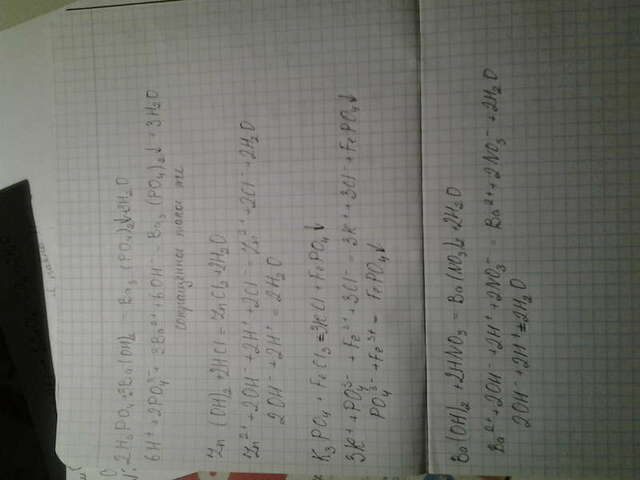 2H₃PO₄+3Ba(OH)₂ = Ba₃(PO₄)₂↓+6H₂O
6H⁺+2PO₄³⁻+3Ba²⁺+6OH⁻ = Ba₃(PO₄)₂↓+3H₂O
сокращённое такое же
Zn(OH)₂+2HCl = ZnCl₂+2H₂O
Zn²⁺+2OH⁻+2H⁺+2Cl⁻ = Zn²⁺+2Cl⁻+2H₂O
2OH⁻+2H⁺ = 2H₂O
K₃PO₄+FeCl₃=3KCl+FePO₄↓
3K⁺+PO₄³⁻+Fe³⁺+3Cl⁻ = 3K⁺+3Cl⁻+FePO₄↓
PO₄³⁻+Fe³⁺ = FePO₄↓
Ba(OH)₂+2HNO₃ = Ba(NO₃)₂+2H₂O
Ba²⁺+2OH⁻+2H⁺+2NO₃⁻ = Ba²⁺+2NO₃⁻+2H₂O
2OH⁻+2H⁺=2H₂O